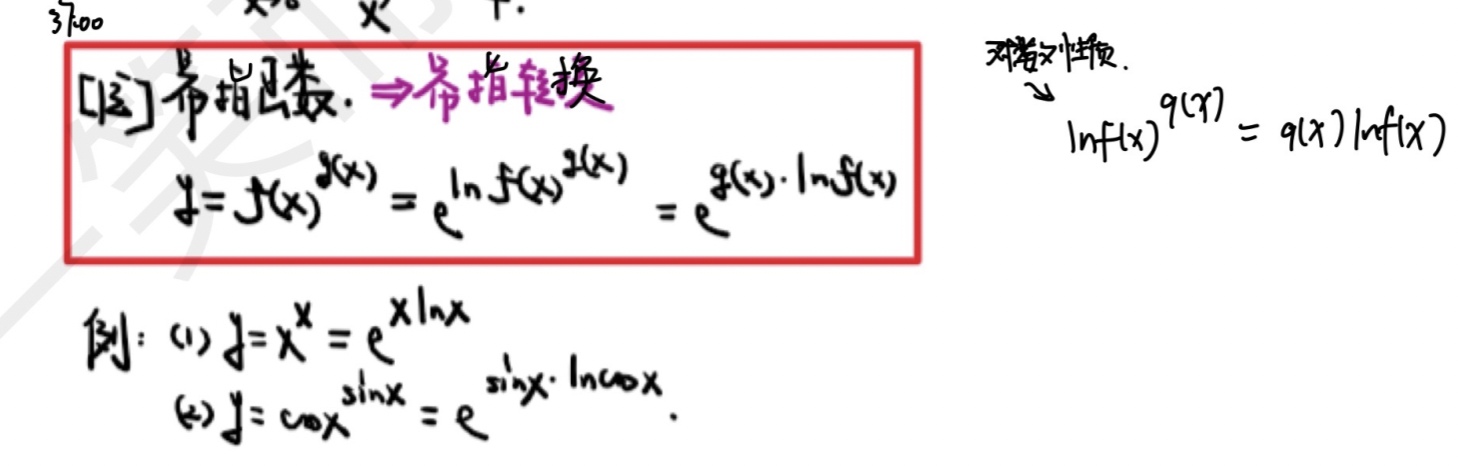 37:00
[注] 幂指函数. ⇒幂指转换
y = f(x)^g(x) = e^ln f(x)^g(x) = e^g(x)·ln f(x)
对数性质.
↘
ln f(x)^g(x) = g(x) ln f(x)
例: (1) y = x^x = e^x ln x
(2) y = cos x^sin x = e^sin x · ln cos x.